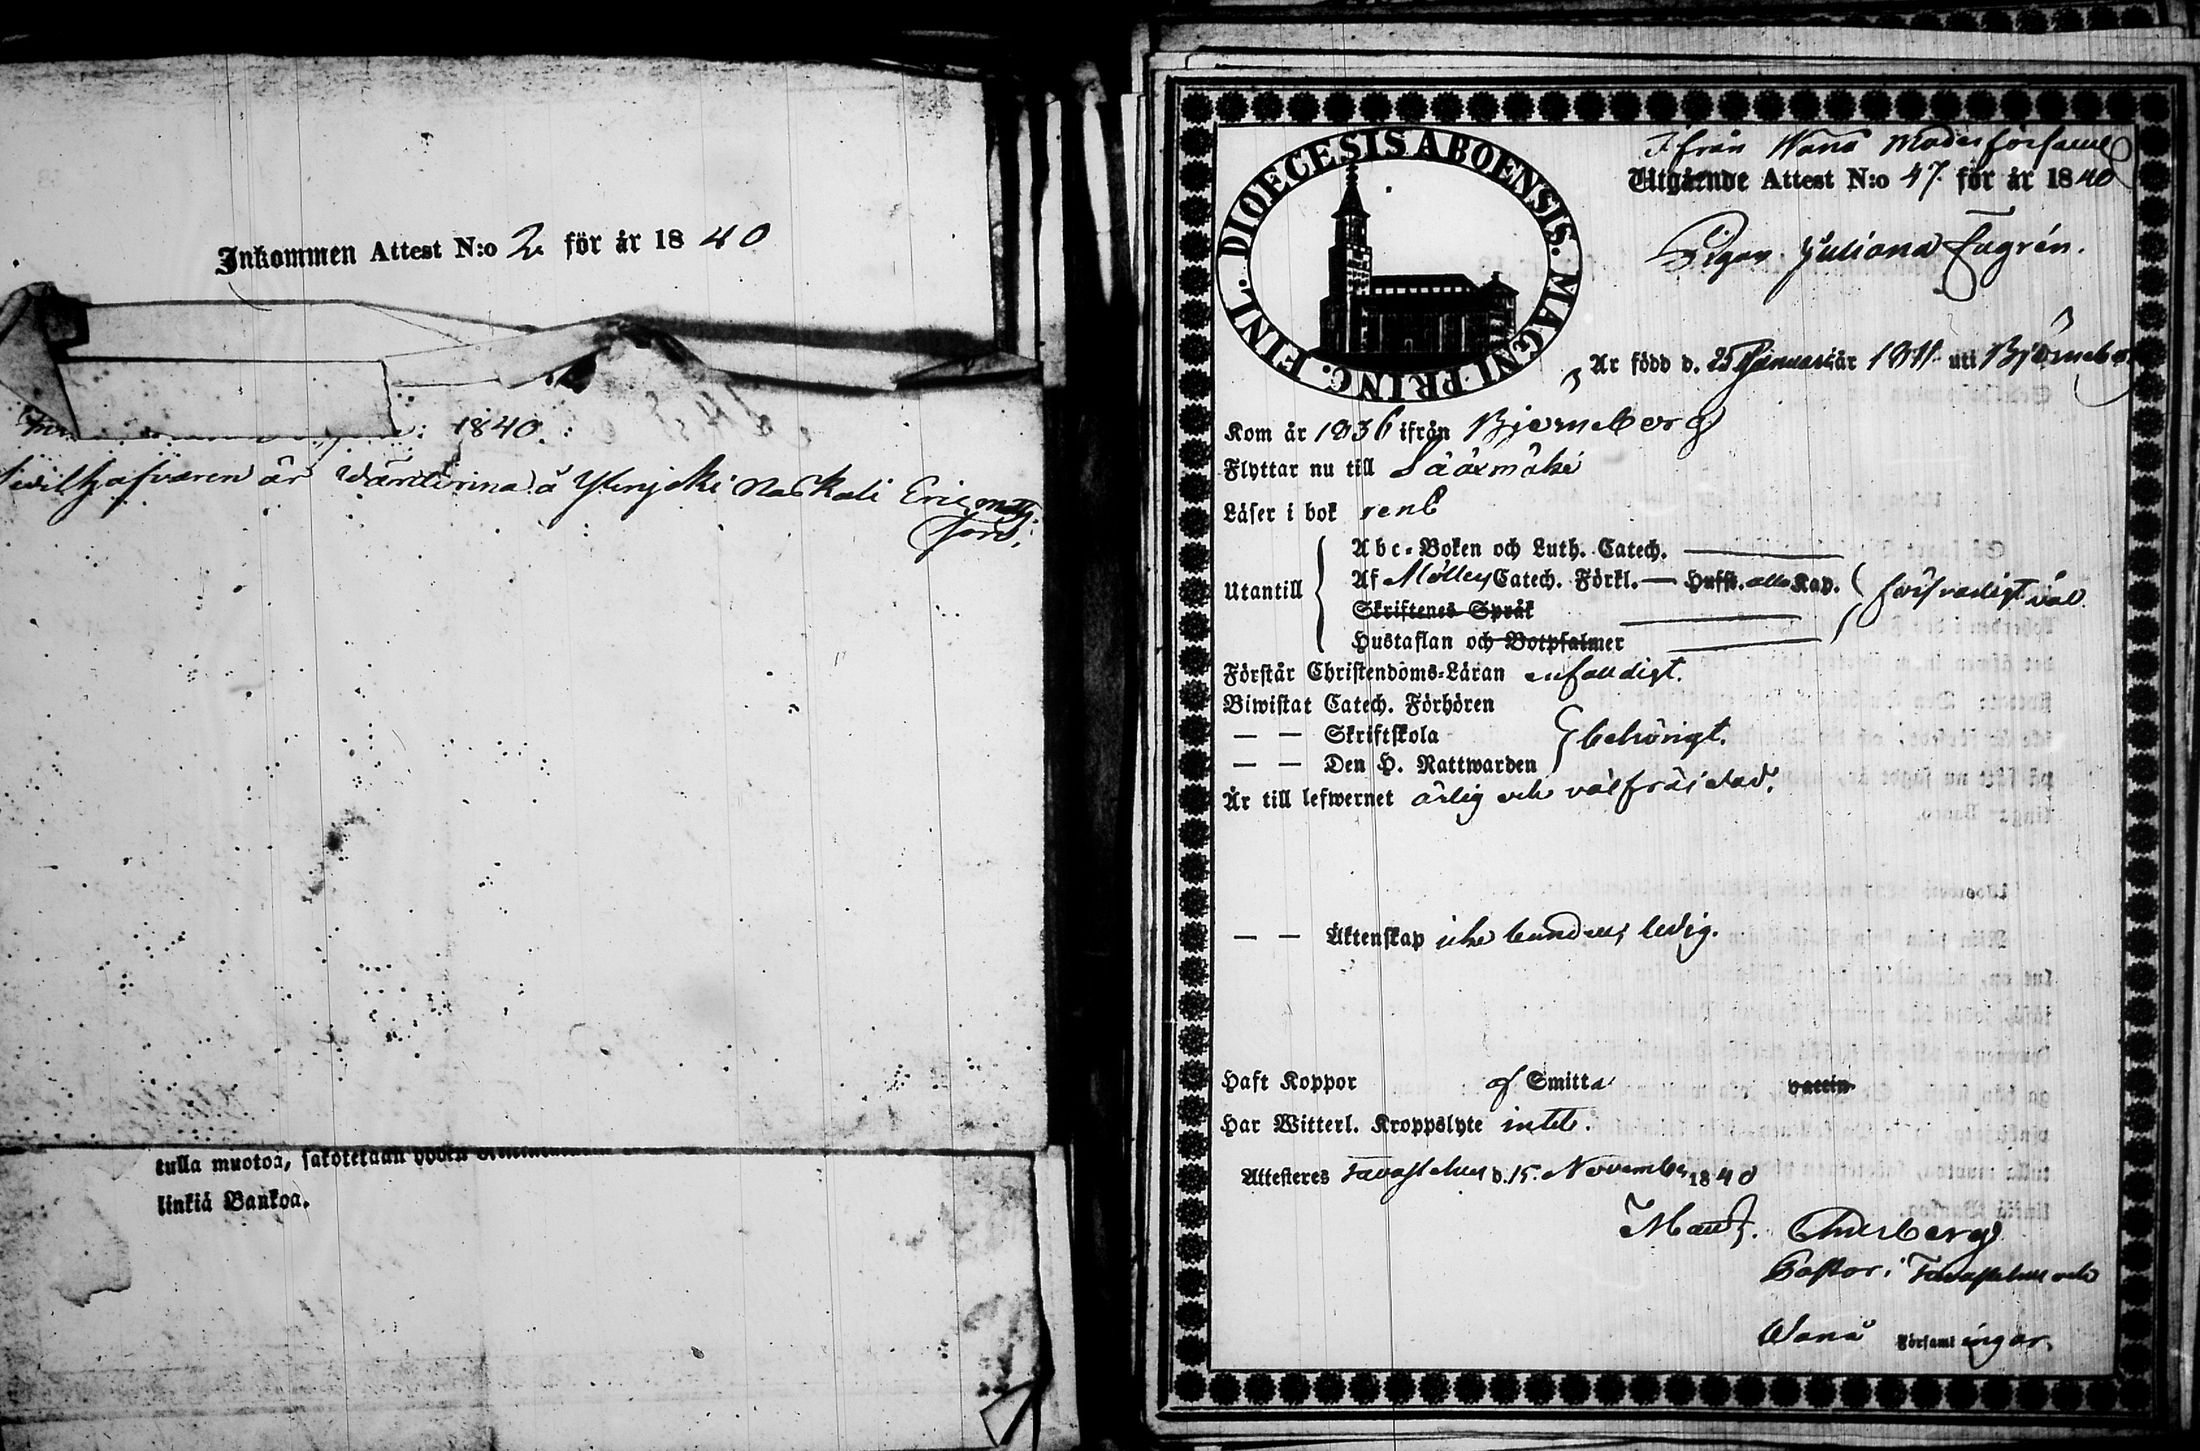 Inkommen Attest N:o 2. för år 1840
1840.
är Värdinna å Ylenjoki Naskali Eric Matts:
tulla muotoa, sakotetaan
linkiä Bankoa.
DIOECESIS ABOENSIS. MAGNI PRINC. FINL.
Ifrån Wånå Moderförsaml
Utgående Attest N:o 47. för år 1840
Pigan Juliana Fagrén.
Är född d. 25 Januari år 1811 uti Björneborg
Kom år 1836 ifrån Björneborg
Flyttar nu till Sääxmäki
Läser i bok rent
Utantill
Abc-Boken och Luth. Catech.
Af Möllers Catech. Förkl. — Hufst. alla Kap.
försvarligt väl
Skriftenes Språk
Hustaflan och Botpsalmer
Förstår Christendoms-Läran enfaldigt.
Biwistat Catech. Förhören
— — Skriftskola
behörigt.
— — Den H. Nattwarden
Är till lefwernet ärlig och välfräjdad.
— — Äktenskap icke bunden, ledig.
Haft Koppor af Smitta vaccin
Har Witterl. Kroppslyte intet.
Attesteres Tavastehus d. 15. November 1840
Pastor i Tavastehus och
Wånå Församlingar.